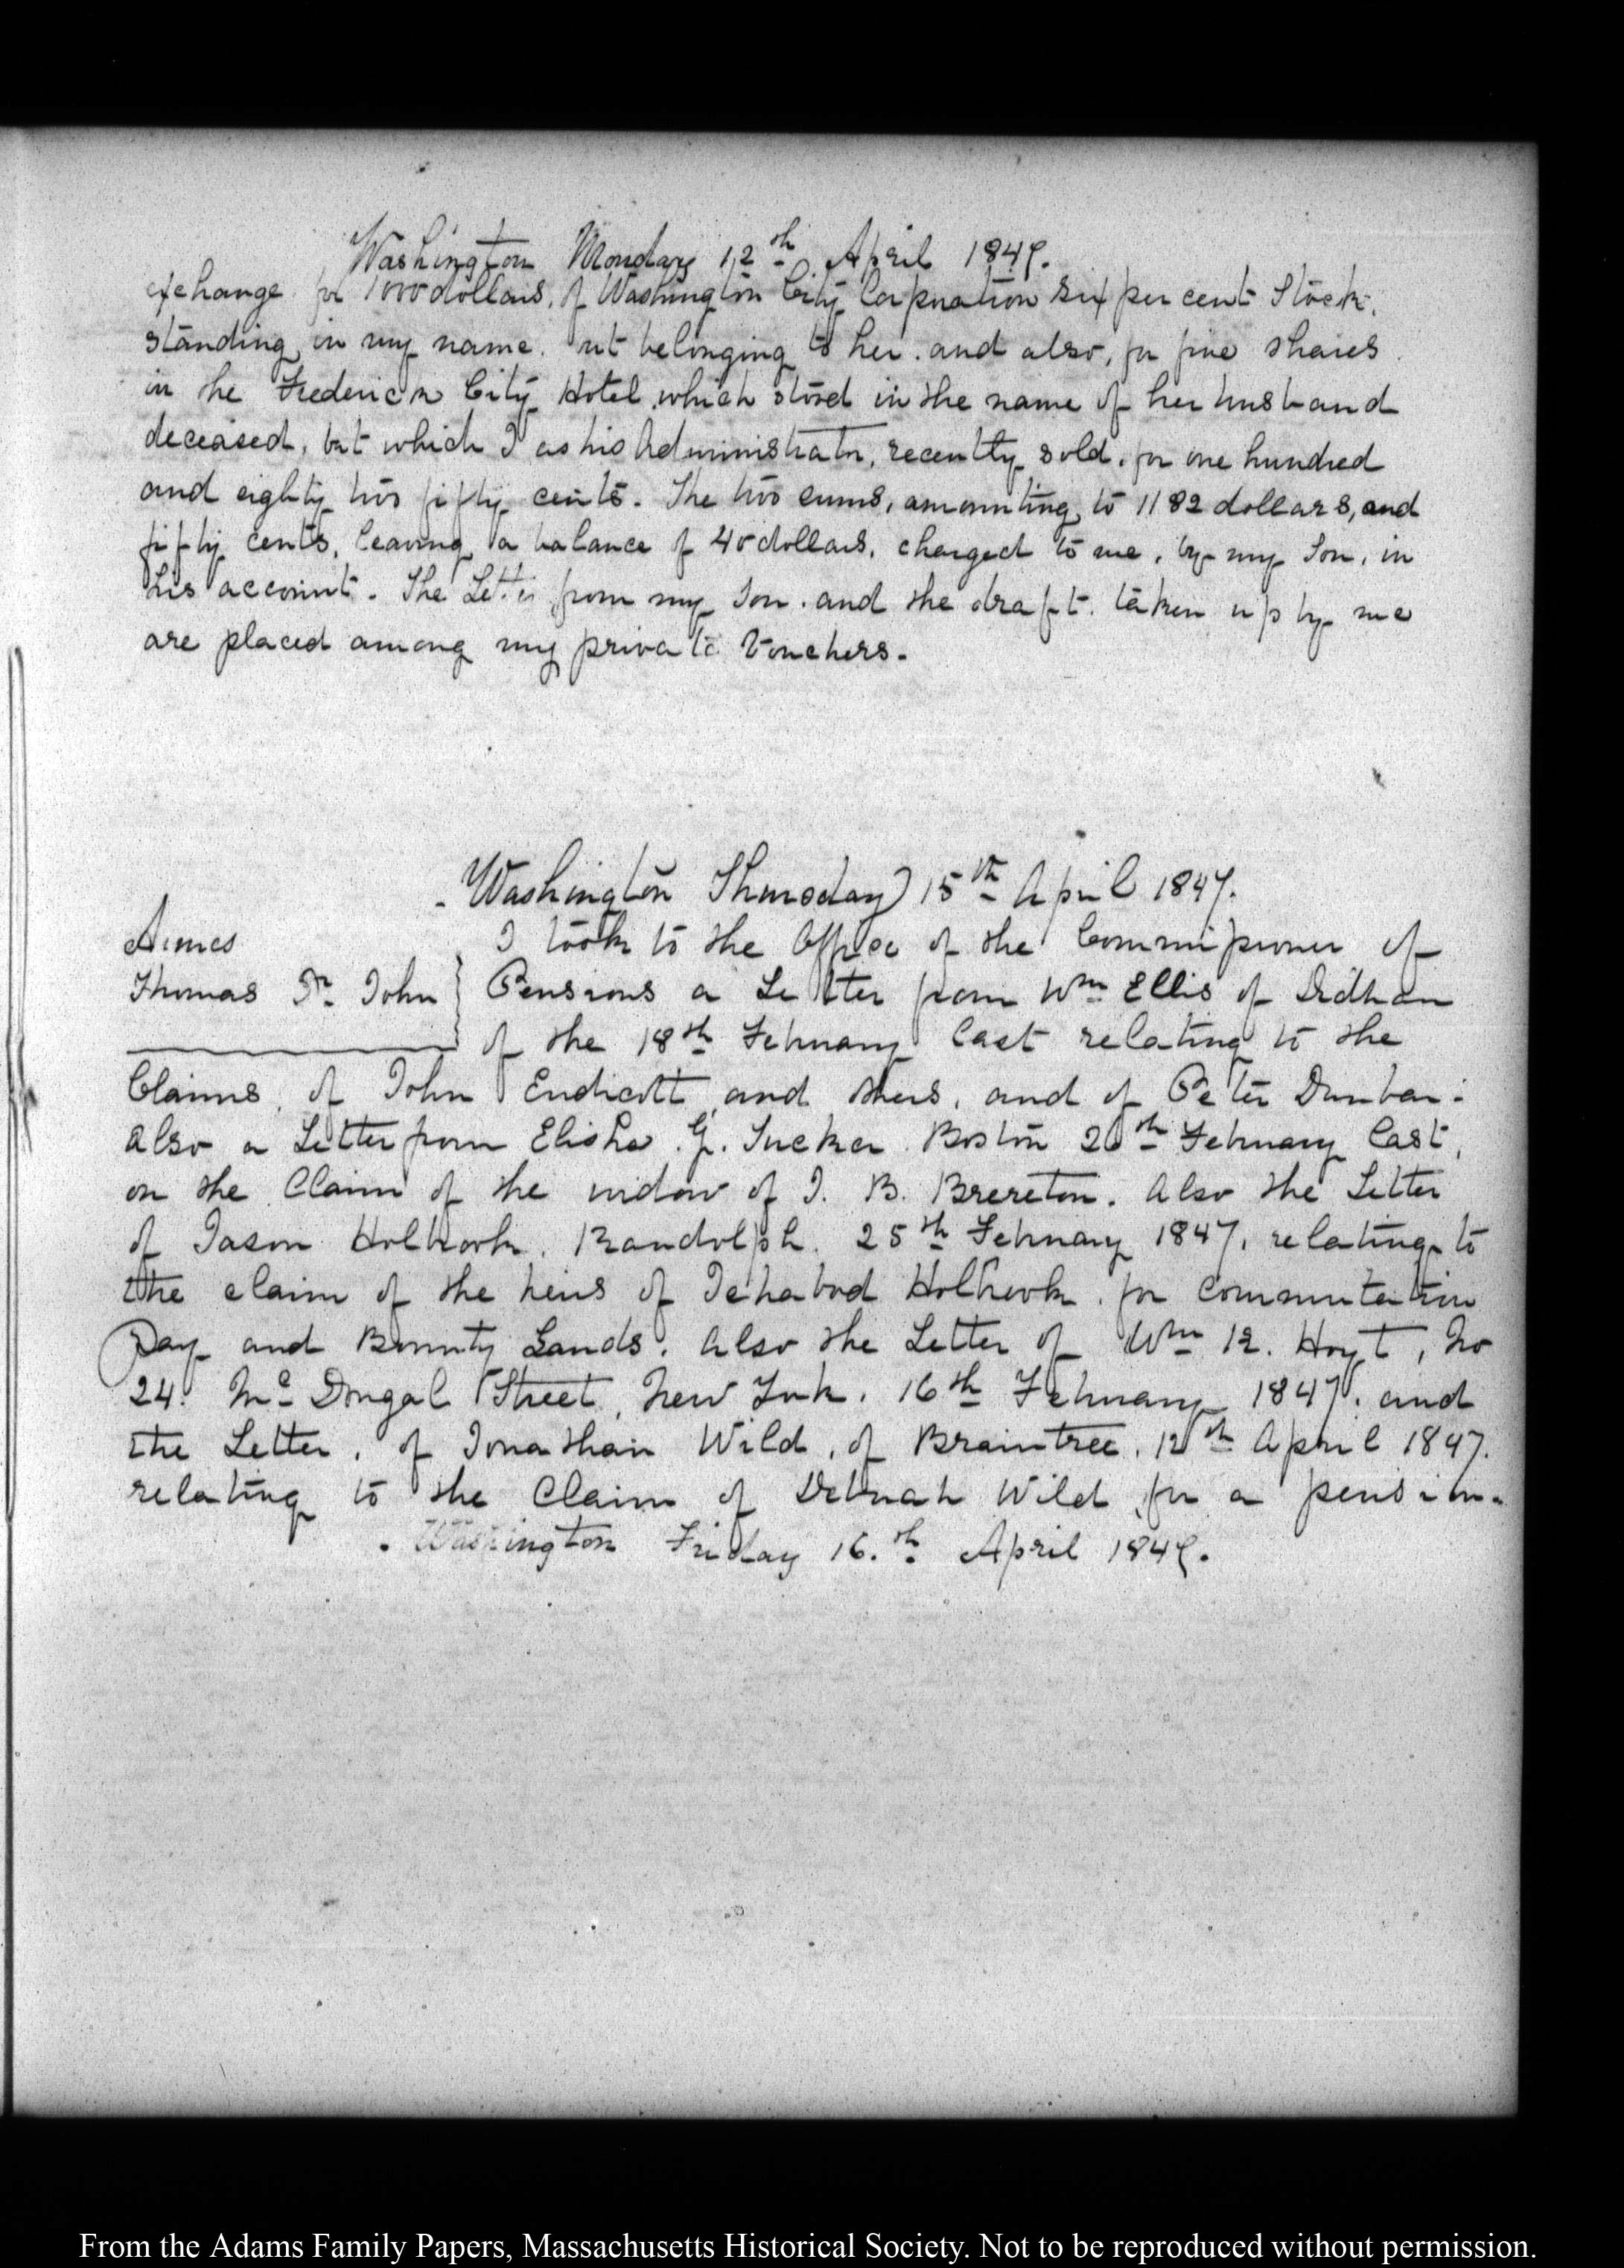 Washington Monday 12th April 1847.
exchange for 1000 dollars, of Washington City Corporation six per cent Stock,
standing in my name. but belonging to her. and also, for five shares
in the Frederick City Hotel which stood in the name of her husband
deceased, but which I as his Administrator, recently sold, for one hundred
and eighty two fifty cents. The two sums, amounting to 1182 dollars, and
fifty cents, leaving a balance of 40 dollars, charged to me, by my Son, in
his account. The Letter from my Son. and the draft. taken up by me
are placed among my private Vouchers.
Washington Thursday 15th April 1847.
Aimes
Thomas Jr. John
I took to the Office of the Commissioner of
Pensions a Letter from Wm Ellis of Dedham
of the 18th February last relating to the
Claims, of John Endicott and others, and of Peter Dunbar:
also a Letter from Elisha G. Tucker Boston 26th February last,
on the Claim of the widow of J. B. Brereton. Also the Letter
of Jason Holbrook. Randolph. 25th February 1847, relating to
the claim of the heirs of Ichabod Holbrook. for commutation
Pay and Bounty Lands. also the Letter of Wm R. Hoyt, No
24. Mc Dougal Street, New York. 16th February 1847. and
the Letter, of Jonathan Wild, of Braintree. 12th April 1847.
relating to the Claim of Deborah Wild for a pension.
Washington Friday 16.th April 1847.
From the Adams Family Papers, Massachusetts Historical Society. Not to be reproduced without permission.